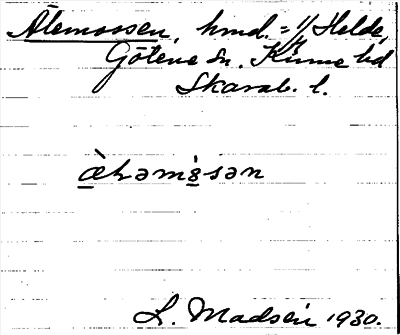 Ålemossen, hmd. = 1/1 Helde,
Götene sn. Kinne hd
Skarab. l.
L. Madsén 1930.